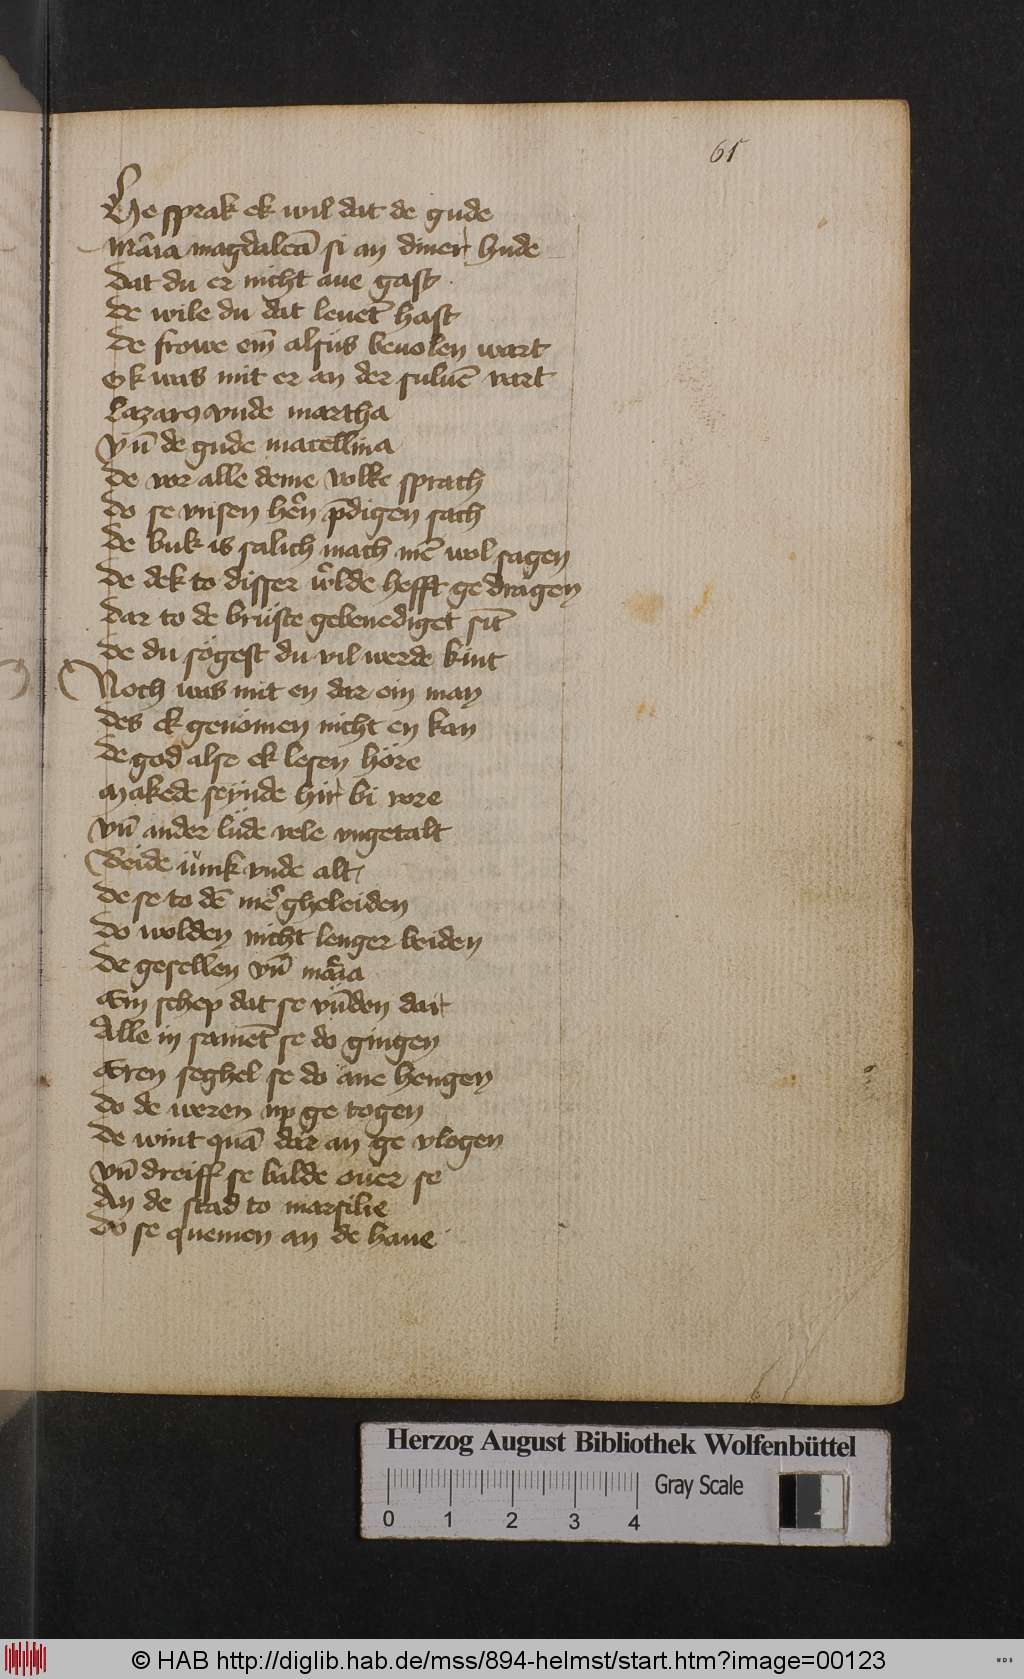 61
He sprak ek wil dat de gude
Mār̄ia magdaleā si an diner hude
Dat du er nicht aue gast
De wile du dat leuēt hast
De frowe em̄ alsus beuolen wart
Ok was mit er an der suluē vart
Lazarꝰ vnde martha
Vn̄ de gude marcellina
De vor alle deme volke sprach
Do se vnsen hēn p̄digen sach
De buk is salich mach mē wol sagen
De dek to disser w̄lde hefft ge dragen
Dar to de brüste gebenediget sīt
De du sögest du vil werde kint
Noch was mit en dar ein man
Des ek genömen nicht en kan
De god alse ek lesen höre
Makede seynde hir bi vore
Vn̄ ander lüde vele vngetalt
Beide iunk vnde alt
De se to dē mē gheleiden
Do wolden nicht lenger beiden
De gesellen vn̄ mār̄ia
Ein schep dat se vūden dar
Alle in samēt se do gingen
Eren seghel se do ane hengen
Do de weren up ge togen
De wint quā dar an ge vlogen
Vn̄ dreiff se balde ouer se
An de stad to marsilie
Do se quemen an de haue
Herzog August Bibliothek Wolfenbüttel
Gray Scale
0 1 2 3 4
© HAB http://diglib.hab.de/mss/894-helmst/start.htm?image=00123